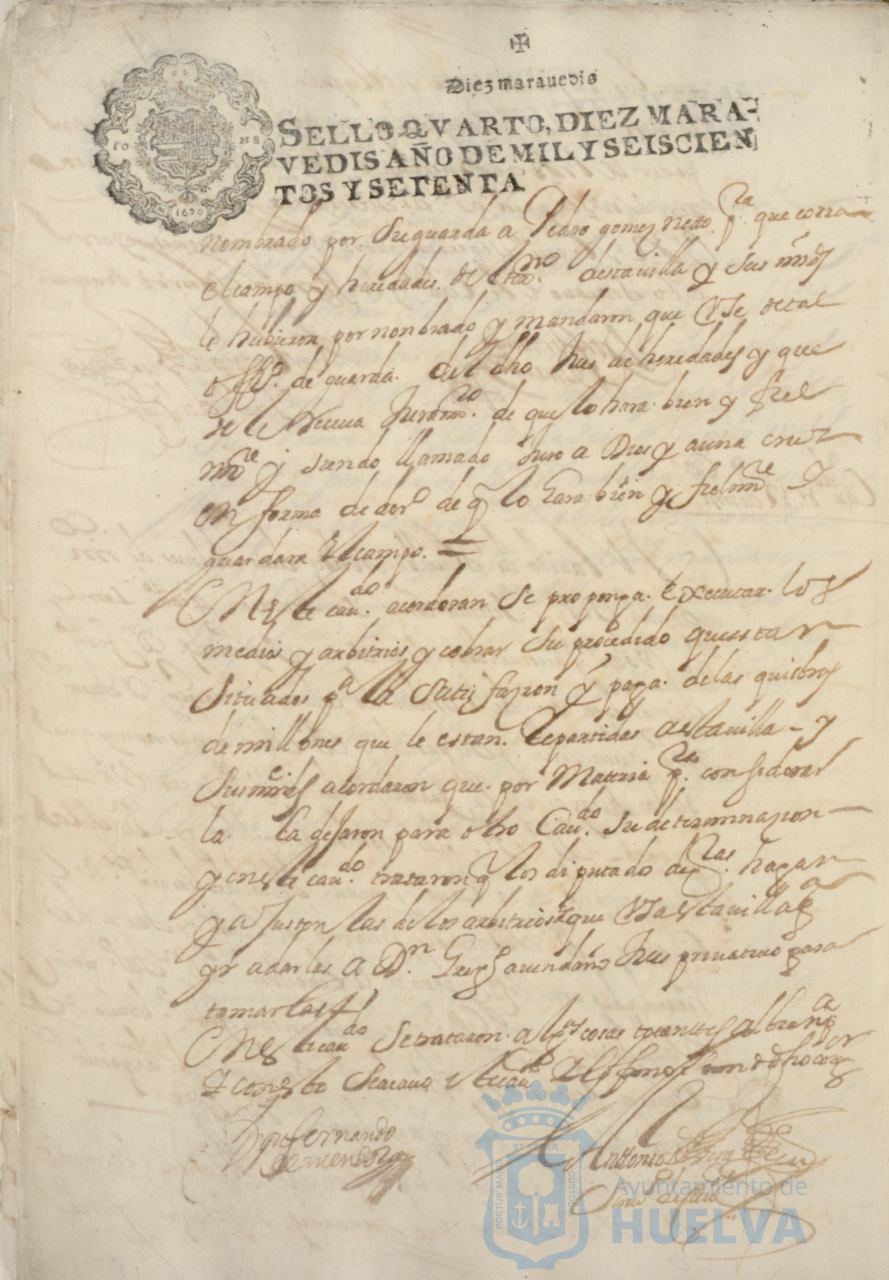 Diez maravedis
SELLO QVARTO, DIEZ MARA-
VEDIS AÑO DE MIL Y SEISCIEN
TOS Y SETENTA
1670
nombrado por su guarda a Pedro gomez nieto pra que corra
el campo y heredades del termno desta villa y sus mrds
le hubieron por nonbrado y mandaron que Vse detal
offº de guarda del dho Jues de heredades y que
se le Reciua Juramto de que lo hara bien y fiel
mte y siendo llamado Juro a Dios y a una cruz
en forma de derº de q lo hara bien y fielmte y
guardara el campo =
En este caudo acordaron se proponga executar los
medios y arbitrios y cobrar su prosedido questan
situados pª la Satisfazion y paga de las quiebras
de millones que le estan Repartidas a esta villa y
sus mrds acordaron que por Materia pra considerar
la la dejaron para otro Caudo su determinazion
y en este caudo trataron q los diputado de hagan
y ajusten las de los arbitrios que Vsa esta villa
y a darles a Dn auendaño Jues priuatiuo para
tomarlas
En este caudo se trataron a cosas tocantes al bien
Y con esto se acauo este caudo
Don fernando
de mendoza
Antonio
PORTUS MARIS ET TERRAE CUSTODIA
Ayuntamiento de
HUELVA